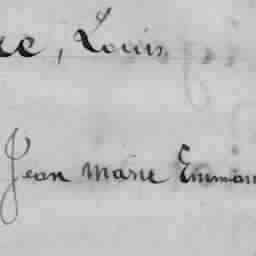 re, Louis
Jean Marie Emman